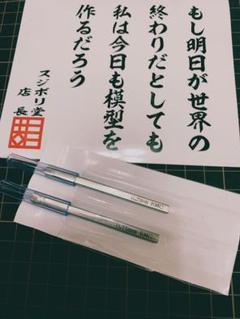 もし明日が世界の
終わりだとしても
私は今日も模型を
作るだろう
スジボリ堂
店長